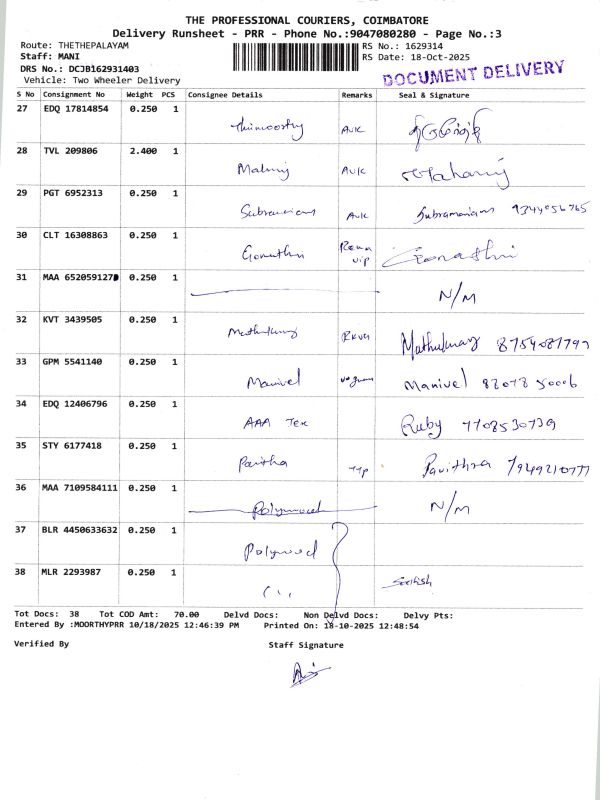 THE PROFESSIONAL COURIERS, COIMBATORE
Delivery Runsheet - PRR - Phone No.:9047080280 - Page No.:3
Route: THETHEPALAYAM RS No.: 1629314
Staff: MANI RS Date: 18-Oct-2025
DRS No.: DCJB162931403 DOCUMENT DELIVERY
Vehicle: Two Wheeler Delivery
S No Consignment No Weight PCS Consignee Details Remarks Seal & Signature
27 EDQ 17814854 0.250 1
28 TVL 209806 2.400 1
29 PGT 6952313 0.250 1
Subramaniam
30 CLT 16308863 0.250 1
Gomathi
31 MAA 652059127 0.250 1
N/M
32 KVT 3439505 0.250 1
33 GPM 5541140 0.250 1
Manivel Manivel
34 EDQ 12406796 0.250 1
AAA Tex Ruby 7708530739
35 STY 6177418 0.250 1
Pavithra
36 MAA 7109584111 0.250 1
Polywood N/M
37 BLR 4450633632 0.250 1
Polywood
38 MLR 2293987 0.250 1
Tot Docs: 38 Tot COD Amt: 70.00 Delvd Docs: Non Delvd Docs: Delvy Pts:
Entered By :MOORTHYPRR 10/18/2025 12:46:39 PM Printed On: 18-10-2025 12:48:54
Verified By Staff Signature